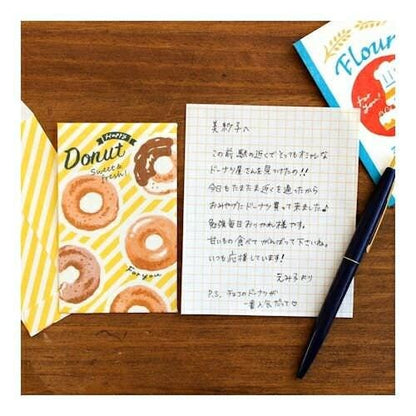 Happy
Donut
Sweet &
fresh!
For you
美紗子へ
この前、駅の近くでとってもオシャレな
ドーナツ屋さんを見つけたの!!
今日もたまたま近くを通ったから
おみやげにドーナツ買って来ました♪
勉強毎日おつかれ様です。
甘いもの食べてがんばって下さいね。
いつも応援しています!
元み子より
P.S. チョコのドーナツが
一番人気だって♡
Flour
for you!